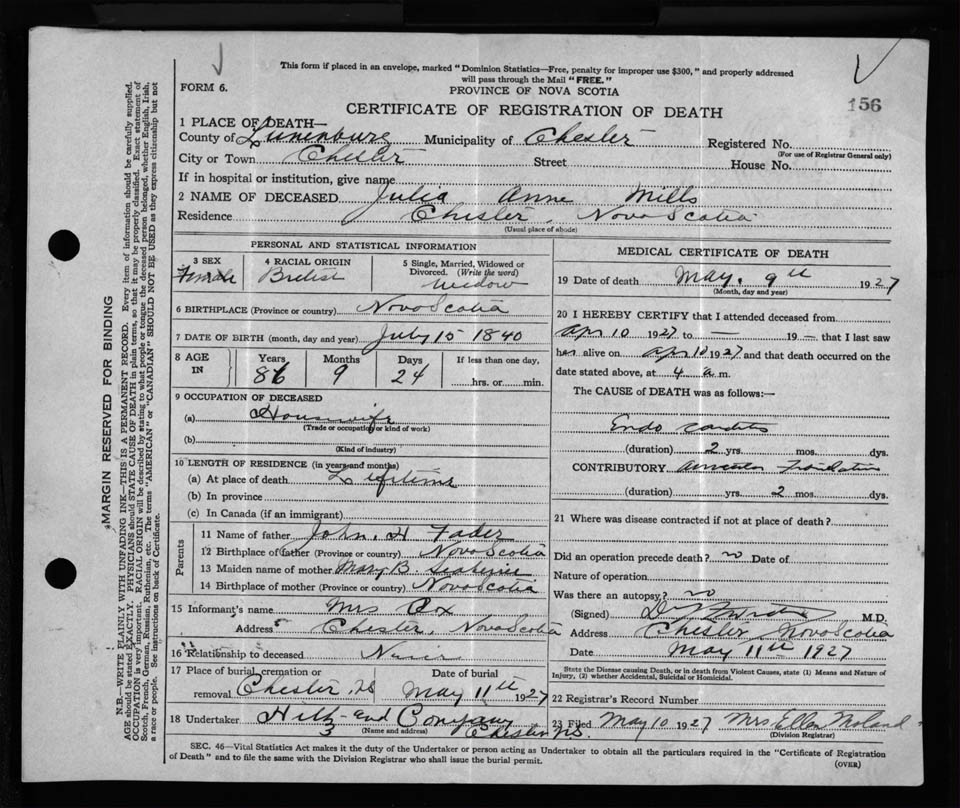 This form if placed in an envelope, marked "Dominion Statistics—Free, penalty for improper use $300," and properly addressed
will pass through the Mail "FREE."
FORM 6.
PROVINCE OF NOVA SCOTIA
156
CERTIFICATE OF REGISTRATION OF DEATH
1 PLACE OF DEATH—
County of Lunenburg Municipality of Chester Registered No.
(For use of Registrar General only)
City or Town Chester Street House No.
If in hospital or institution, give name
2 NAME OF DECEASED Julia Anne Mills
Residence Chester, Nova Scotia
(Usual place of abode)
PERSONAL AND STATISTICAL INFORMATION
3 SEX 4 RACIAL ORIGIN 5 Single, Married, Widowed or
Divorced. (Write the word)
Female British Widow
6 BIRTHPLACE (Province or country) Nova Scotia
7 DATE OF BIRTH (month, day and year) July 15 1840
8 AGE IN Years Months Days If less than one day,
86 9 24 hrs. or min.
9 OCCUPATION OF DECEASED
(a) Housewife
(Trade or occupation or kind of work)
(b)
(Kind of industry)
10 LENGTH OF RESIDENCE (in years and months)
(a) At place of death Lifetime
(b) In province
(c) In Canada (if an immigrant)
Parents
11 Name of father John. H Fader
12 Birthplace of father (Province or country) Nova Scotia
13 Maiden name of mother Mary B
14 Birthplace of mother (Province or country) Nova Scotia
15 Informant's name Mrs Cox
Address Chester, Nova Scotia
16 Relationship to deceased
17 Place of burial, cremation or removal Chester, NS Date of burial May 11th 1927
18 Undertaker Hiltz and Company
(Name and address) Chester N.S.
MEDICAL CERTIFICATE OF DEATH
19 Date of death May. 9th 1927
(Month, day and year)
20 I HEREBY CERTIFY that I attended deceased from
Apr 10 1927 to — 19 — that I last saw
her alive on Apr 10 1927 and that death occurred on
date stated above, at 4 a m.
The CAUSE of DEATH was as follows:—
Endo carditis
(duration) 2 yrs. mos. dys.
CONTRIBUTORY
(duration) yrs. 2 mos. dys.
21 Where was disease contracted if not at place of death?
Did an operation precede death? no Date of
Nature of operation
Was there an autopsy? no
(Signed) M.D.
Address Chester Nova Scotia
Date May 11th 1927
State the Disease causing Death, or in death from Violent Causes, state (1) Means and Nature of
Injury, (2) whether Accidental, Suicidal or Homicidal.
22 Registrar's Record Number
23 Filed May 10 1927 Mrs Ellen
(Division Registrar)
SEC. 46—Vital Statistics Act makes it the duty of the Undertaker or person acting as Undertaker to obtain all the particulars required in the "Certificate of Registration
of Death" and to file the same with the Division Registrar who shall issue the burial permit.
(OVER)
MARGIN RESERVED FOR BINDING
N.B.—WRITE PLAINLY WITH UNFADING INK—THIS IS A PERMANENT RECORD. Every item of information should be carefully supplied.
AGE should be stated EXACTLY. PHYSICIANS should STATE CAUSE OF DEATH in plain terms, so that it may be properly classified. Exact statement of
OCCUPATION is very important. RACIAL ORIGIN will be described by stating to what people or tongue the deceased person belonged, whether English, Irish,
Scotch, French, German, Russian, Ruthenian, etc. The terms "AMERICAN" or "CANADIAN" SHOULD NOT BE USED as they express citizenship but not
a race or people. See instructions on back of Certificate.